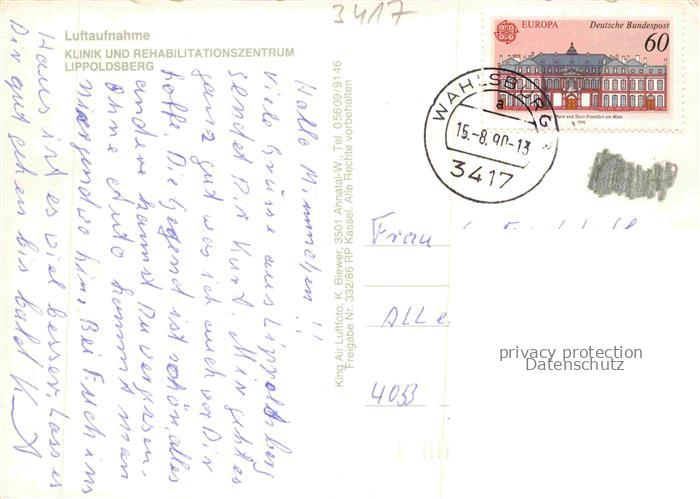 3417
Luftaufnahme
KLINIK UND REHABILITATIONSZENTRUM
LIPPOLDSBERG
Hallo Mimmchen!!
Viele Grüsse aus Lippoldsberg
sendet Dir Kurt. Mir geht es
ganz gut was ich auch von Dir
hoffe. Die Gegend ist schön, alles
andere kannst Du vergessen.
Ohne Auto kommt man
nirgendwo hin. Bei Euch im
Haus ist es viel besser. Lass es
Dir gut gehen bis bald Kurt
King Air Luftfoto, K. Biewer, 3501 Ahnatal-W., Tel. 05609/9146
Freigabe Nr. 332/86 RP Kassel. Alle Rechte vorbehalten
EUROPA
Deutsche Bundespost
60
Thurn und Taxis Frankfurt am Main
1990
WAHLSBURG
a
15.-8.90-13
3417
Frau
Alle
4053
privacy protection
Datenschutz